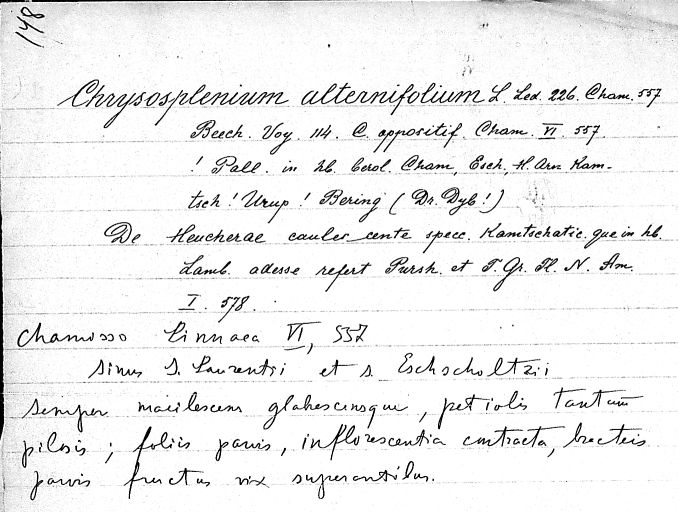 148
Chrysosplenium alternifolium L. Led. 226. Cham. 557
Beech. Voy. 114. C. oppositif. Cham. VI. 557.
! Pall. in hb. berol. Cham, Esch, H. Arn Kam-
tsch! Urup! Bering (Dr. Dyb!)
De Heucherae caules cente specc. Kamtschatic. que in hb.
Lamb. adesse refert Pursh. et T. Gr. Fl. N. Am.
I. 578.
Chamisso Linnaea VI, 557
Sinus S. Laurentii et S. Eschscholtzii
semper macilescens glabescensque, petiolis tantum
pilosis; foliis parvis, inflorescentia contracta, bracteis
parvis fructus vix superantibus.